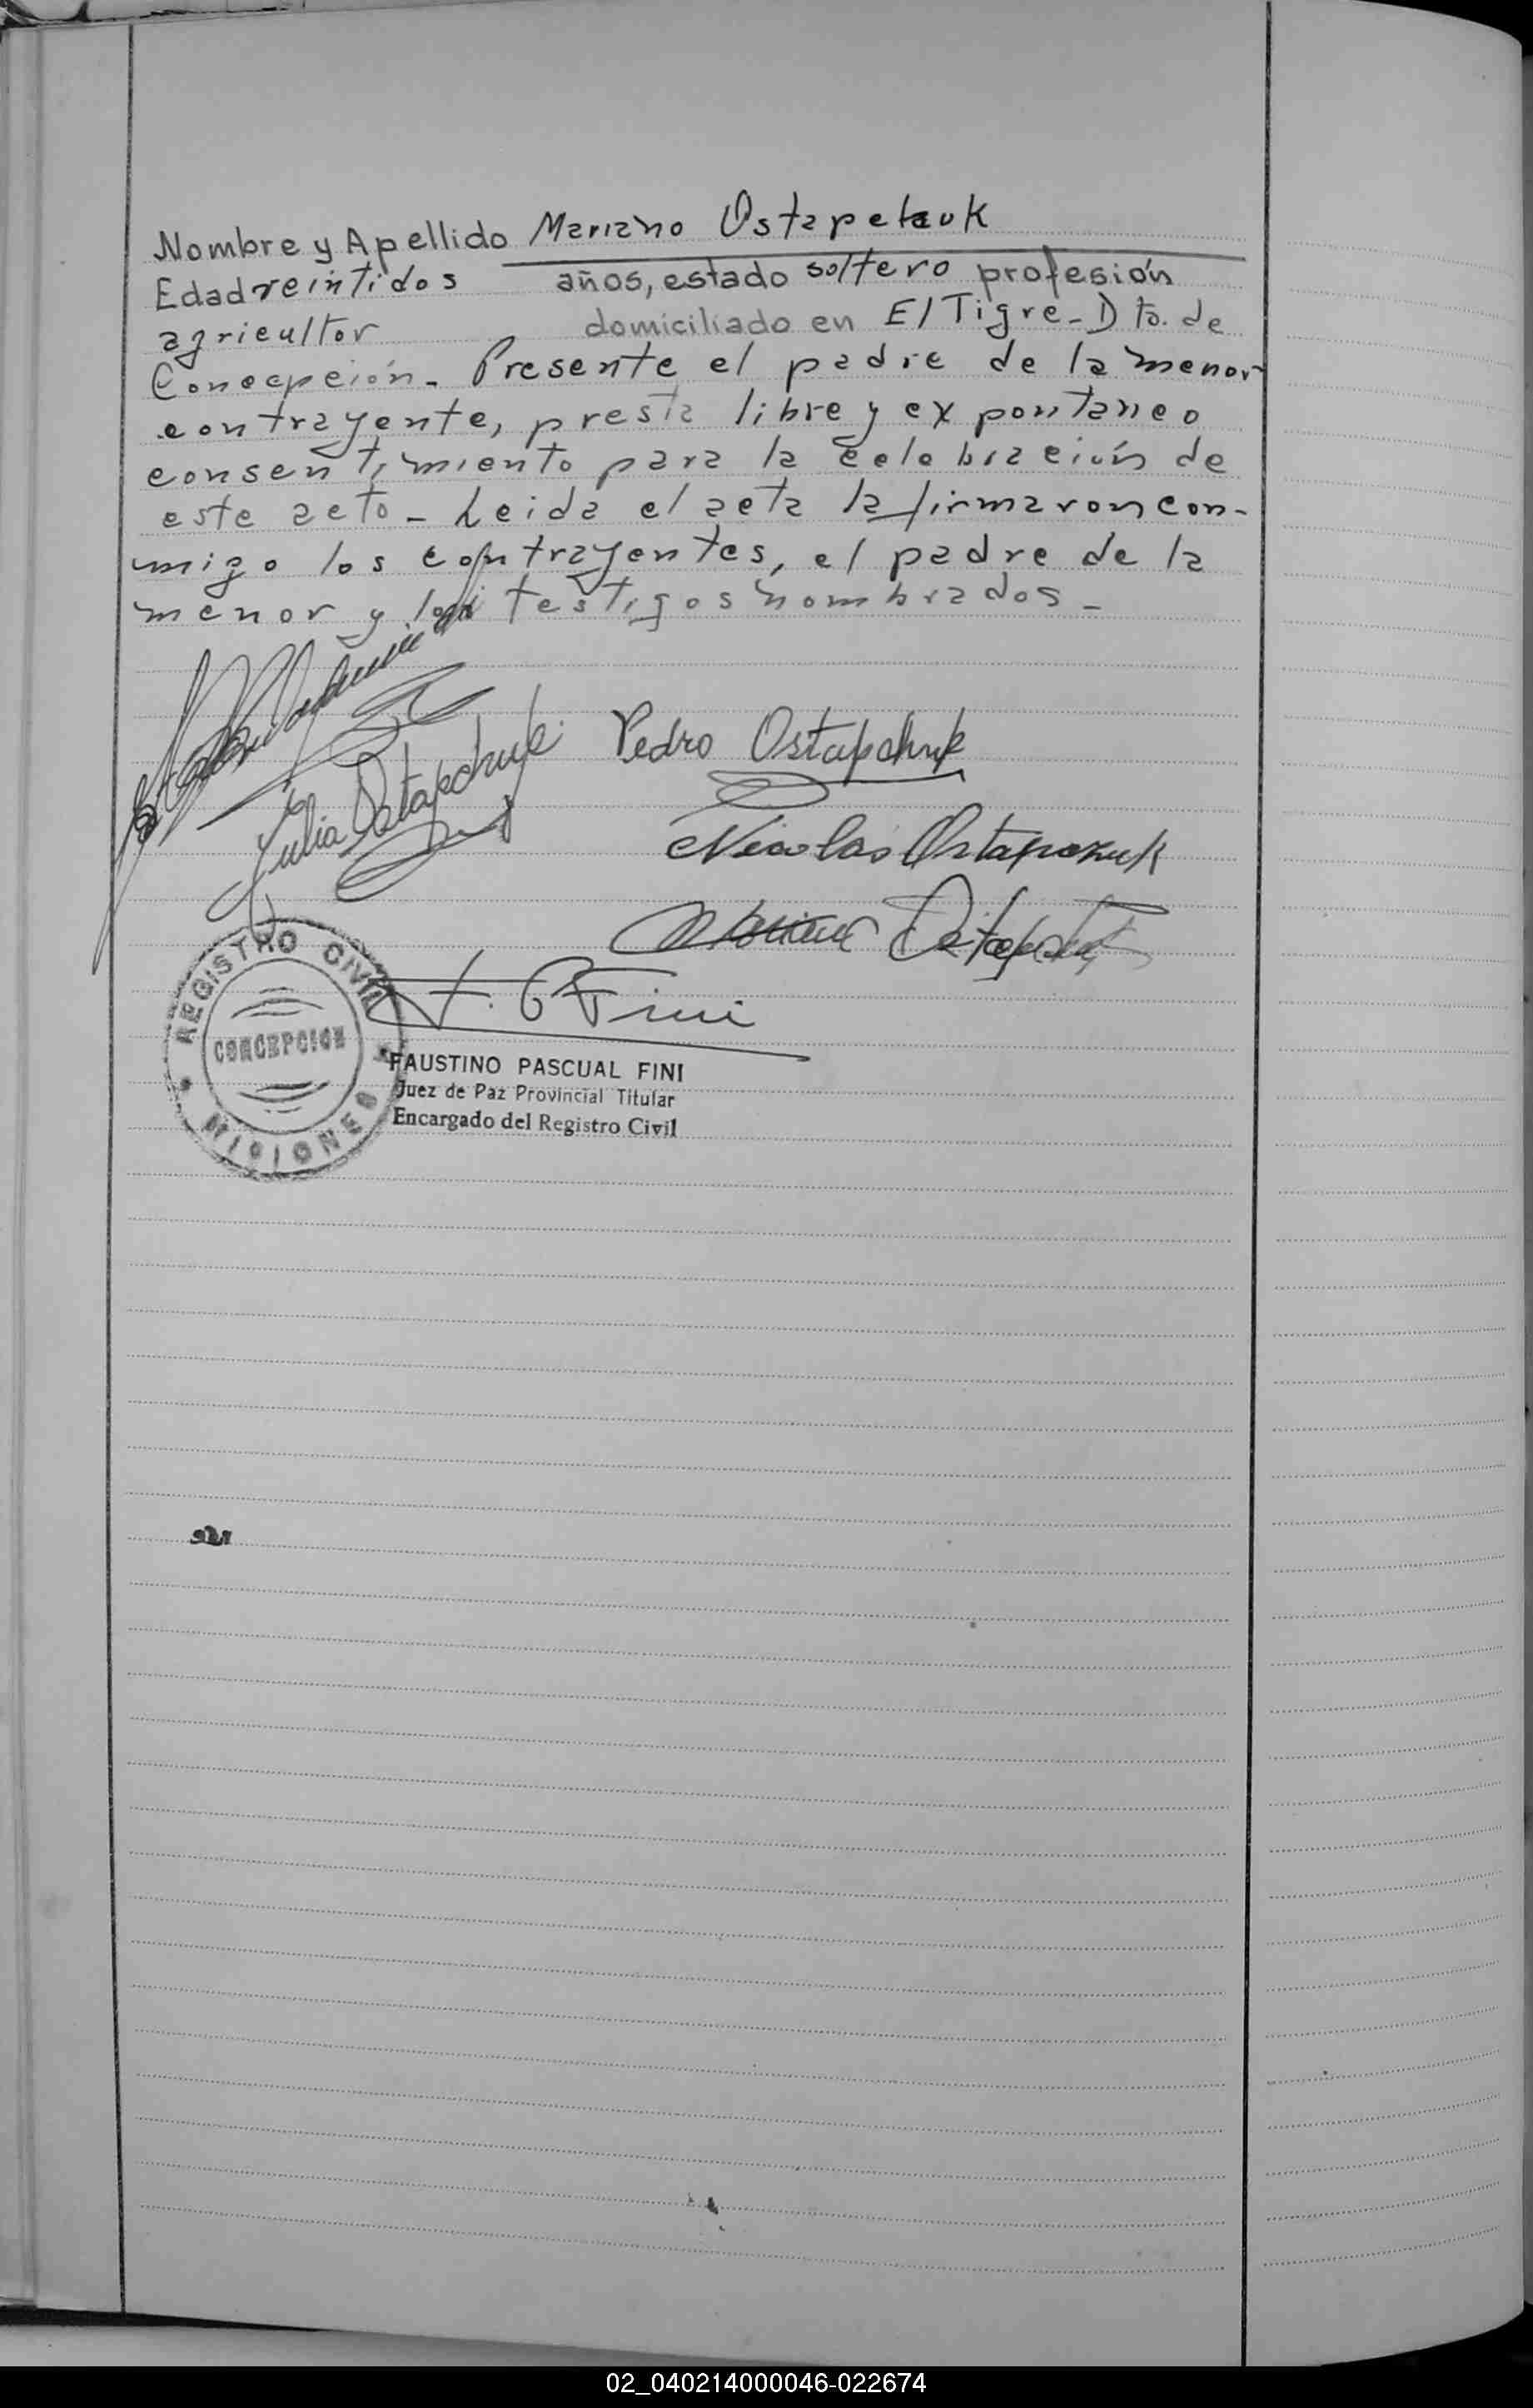 Nombre y Apellido Mariano Ostapctzuk
Edad treintidos años, estado soltero profesión
agricultor domiciliado en El Tigre - Dto. de
Concepción - Presente el padre de la menor
contrayente, presta libre y expontaneo
consentimiento para la celebración de
este acto - Leida el acta la firmaron con-
migo los contrayentes, el padre de la
menor y los testigos nombrados -
Julia Ostapchuk
Pedro Ostapchuk
Nicolas Ostapczuk
Ostapchuk
F. P. Fini
REGISTRO CIVIL
CONCEPCION
MISIONES
FAUSTINO PASCUAL FINI
Juez de Paz Provincial Titular
Encargado del Registro Civil
02_040214000046-022674